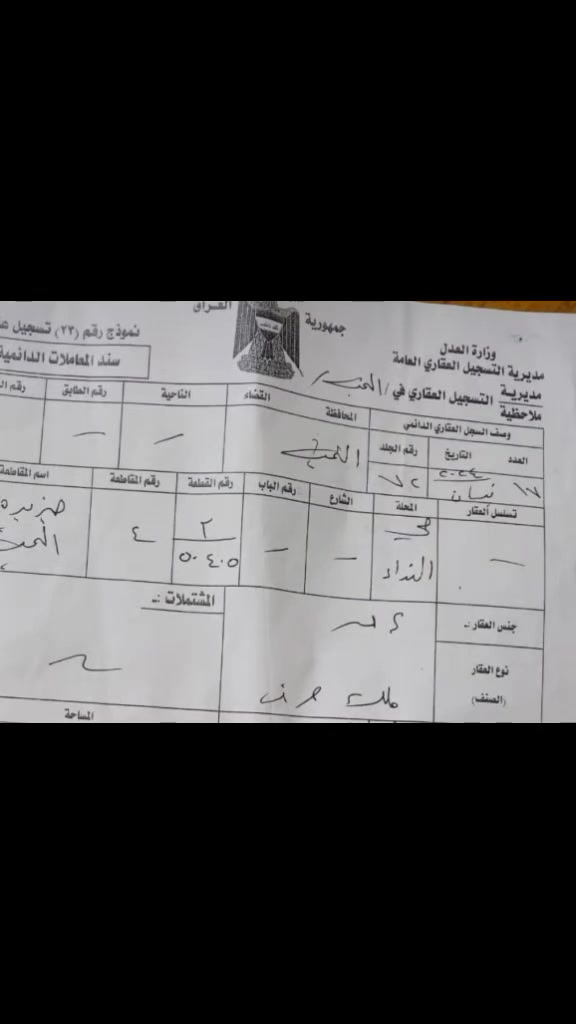 العراق
جمهورية
نموذج رقم (٢٣) تسجيل
وزارة العدل
مديرية التسجيل العقاري العامة
مديرية
ملاحظية التسجيل العقاري في /
سند المعاملات الدائمية
وصف السجل العقاري الدائمي
المحافظة
القضاء
الناحية
رقم الطابق
العدد
التاريخ
رقم الجلد
١٧
٢٠٢٤
نيسان
٧٢
تسلسل العقار
المحلة
الشارع
رقم الباب
رقم القطعة
رقم المقاطعة
اسم المقاطعة
حي
النداء
٢
٥٠٤٠٥
٤
جنس العقار :-
المشتملات :-
نوع العقار
(الصنف)
ملك صرف
المساحة